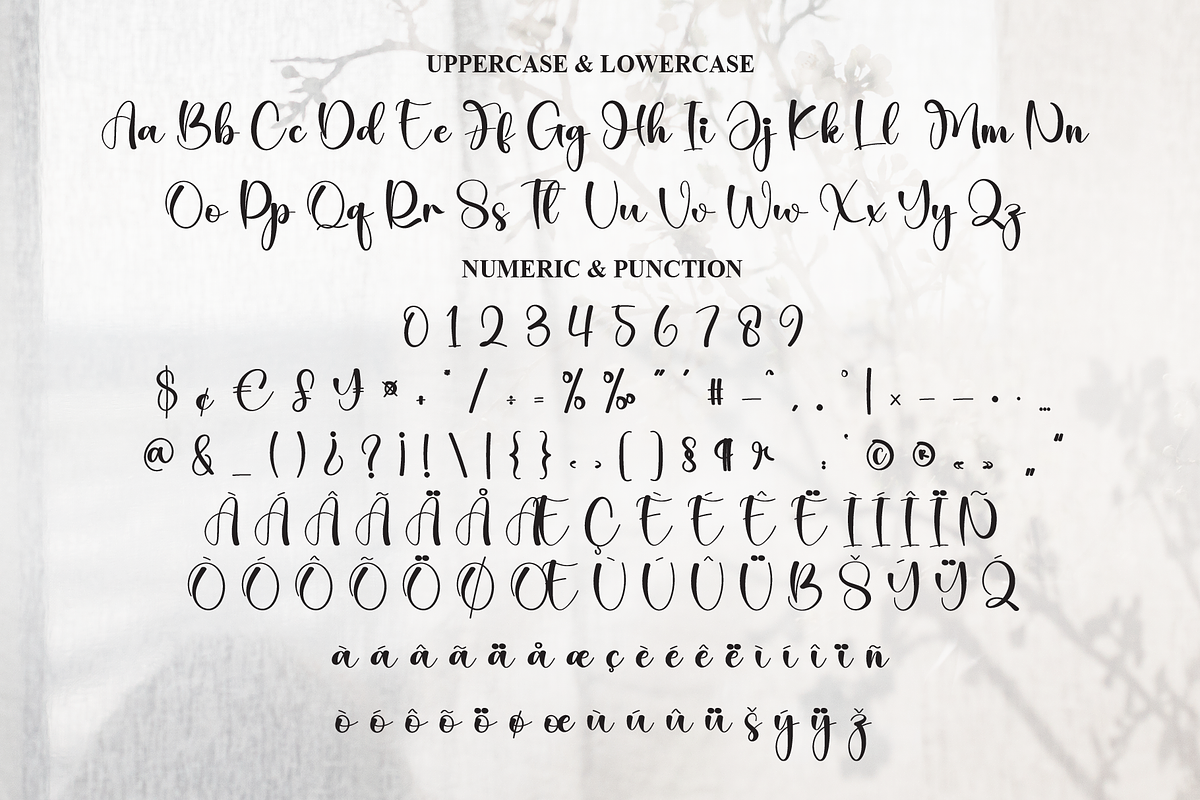 UPPERCASE & LOWERCASE
Aa Bb Cc Dd Ee Ff Gg Hh Ii Jj Kk Ll Mm Nn
Oo Pp Qq Rr Ss Tt Uu Vv Ww Xx Yy Zz
NUMERIC & PUNCTION
0 1 2 3 4 5 6 7 8 9
$ ¢ € £ ¥ ¤ + * / ÷ = % ‰ " ' # – ^ , . ° | × – — • · …
@ & _ ( ) ¿ ? ¡ ! \ | { } ‹ › [ ] § ¶ ' : © ® « » „ “
À Á Â Ã Ä Å Æ Ç È É Ê Ë Ì Í Î Ï Ñ
Ò Ó Ô Õ Ö Ø Œ Ù Ú Û Ü B Š Ý Ÿ Ž
à á â ã ä å æ ç è é ê ë ì í î ï ñ
ò ó ô õ ö ø œ ù ú û ü š ý ÿ ž